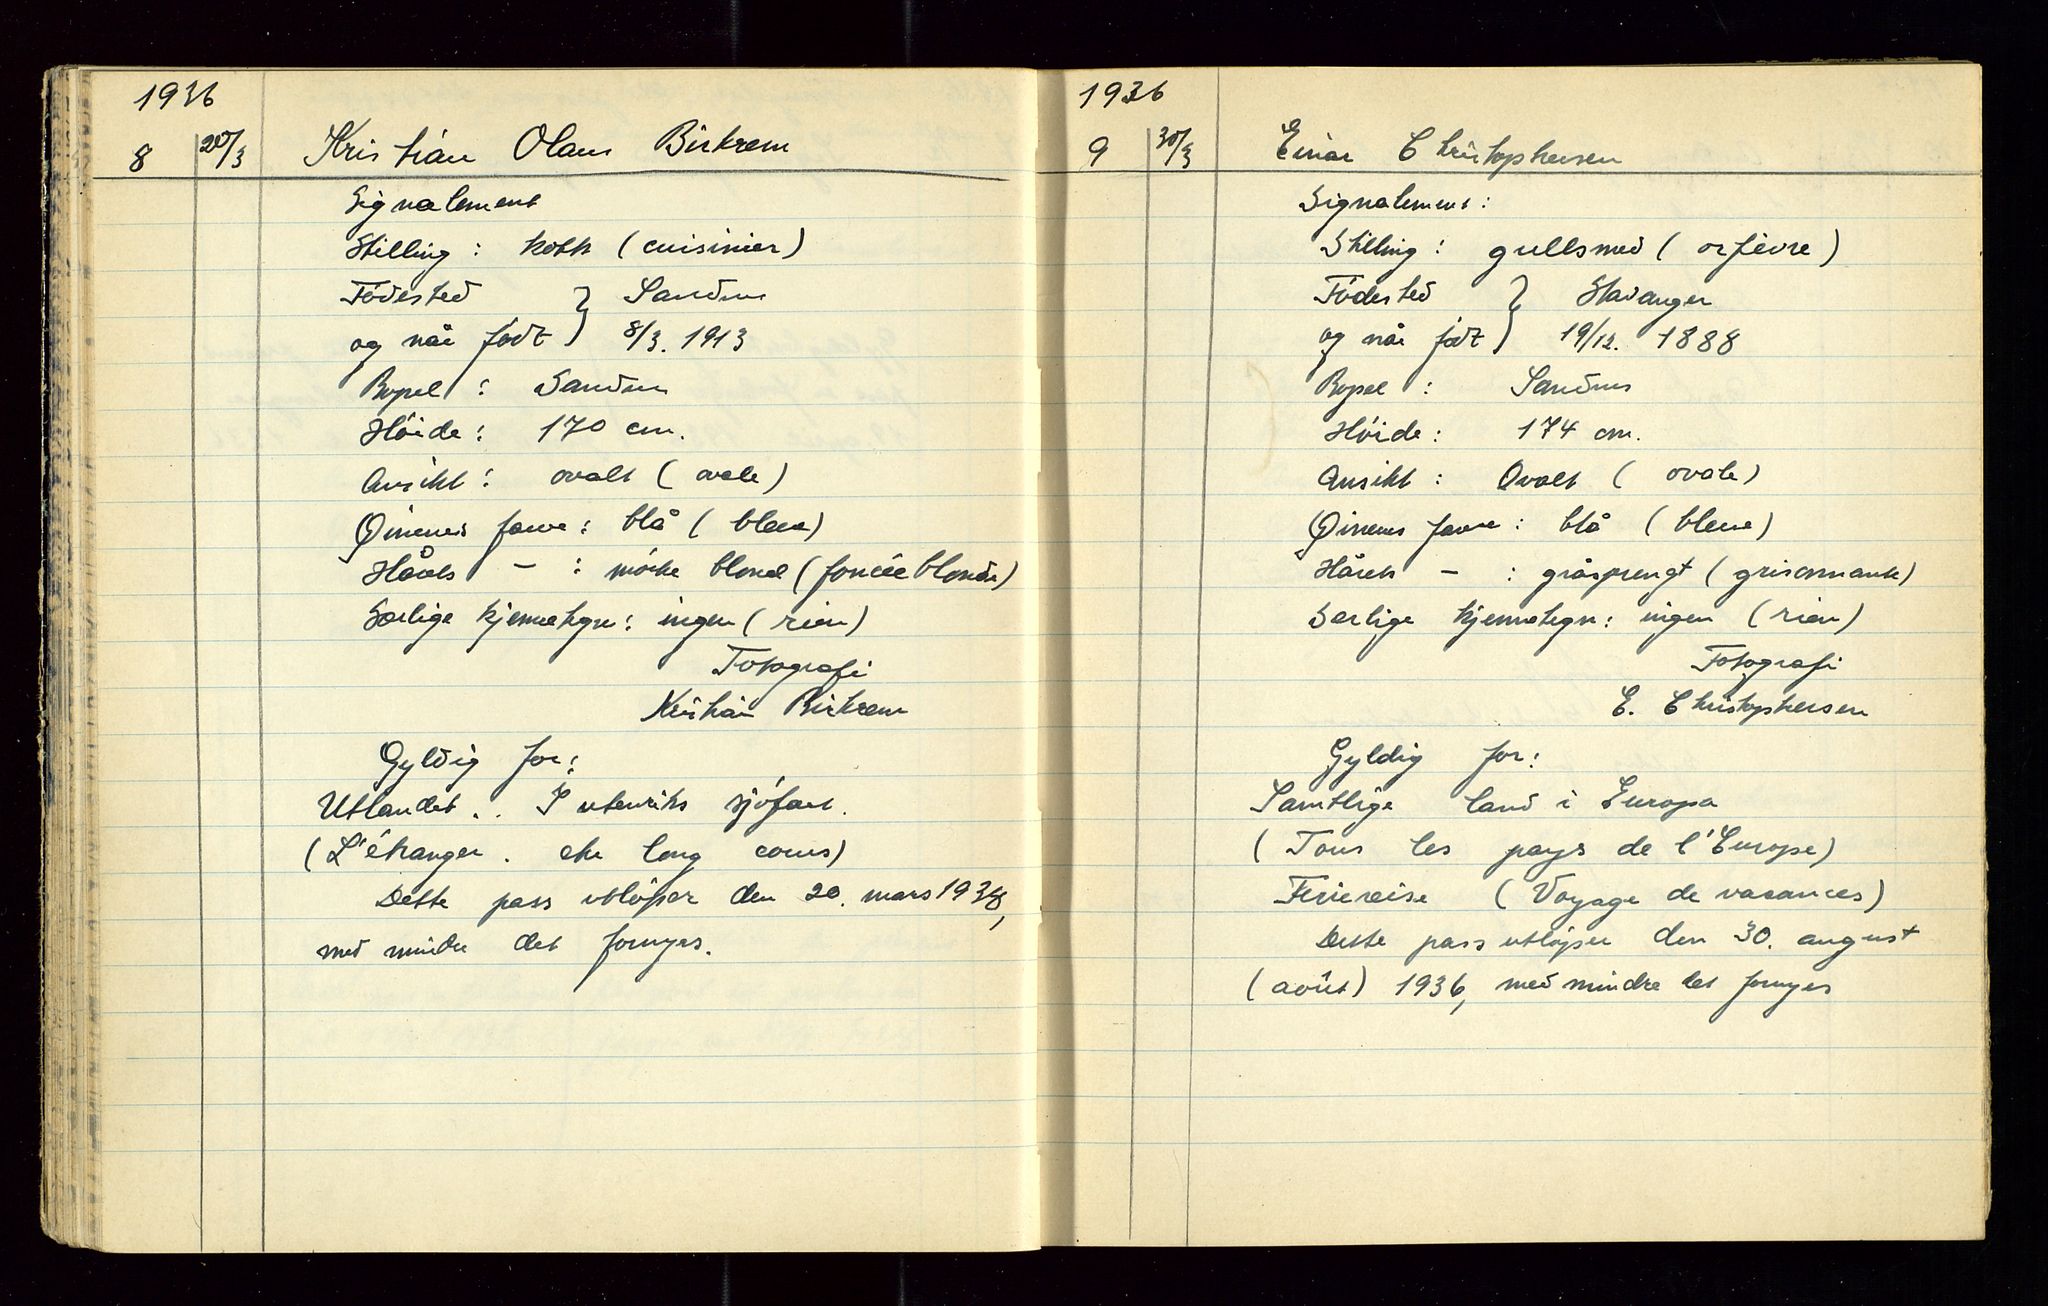 1936
8 20/3 Kristian Olaus Birkrem
Signalement
Stilling: kokk (cuisinier)
Födested } Sandnes
og når födt } 8/3. 1913
Bopel: Sandnes
Höide: 170 cm.
Ansikt: ovalt (ovale)
Øinenes farve: blå (bleue)
Hårets — : mörke blond (foncée blonde)
Særlige kjennetegn: ingen (rien)
Fotografi
Kristian Birkrem
Gyldig for:
Utlandet.. I utenriks sjöfart.
(L'étranger. au long cours)
Dette pass utlöper den 20. mars 1938,
med mindre det fornyes.
1936
9 30/3 Einar Christophersen
Signalement:
Stilling: gullsmed (orfèvre)
Födested } Stavanger
og når födt } 19/12. 1888
Bopel: Sandnes
Höide: 174 cm.
Ansikt: Ovalt (ovale)
Øinenes farve: blå (bleue)
Hårets — : gråsprengt (grisonnante)
Særlige kjennetegn: ingen (rien)
Fotografi
E. Christophersen
Gyldig for:
Samtlige land i Europa
(Tous les pays de l'Europe)
Feriereise (Voyage de vacances)
Dette pass utløper den 30. august
(août) 1936, med mindre det fornyes